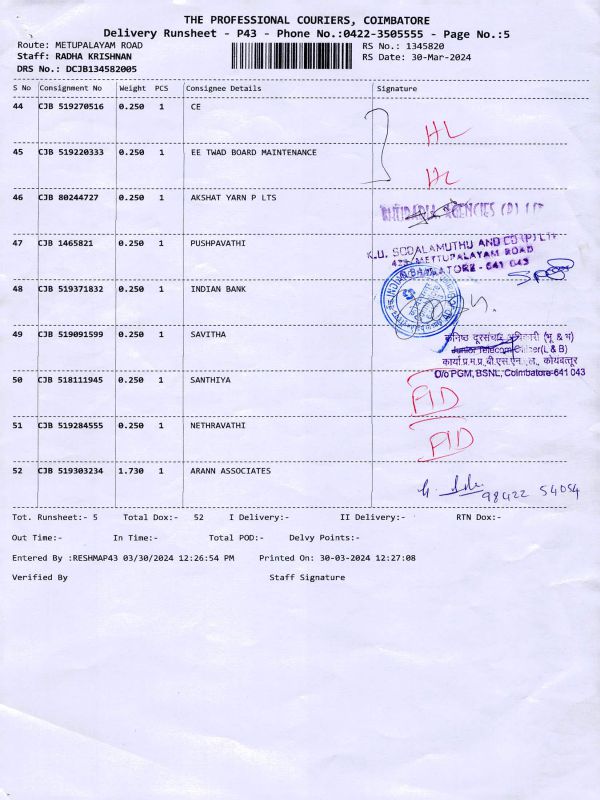 THE PROFESSIONAL COURIERS, COIMBATORE
Delivery Runsheet - P43 - Phone No.:0422-3505555 - Page No.:5
Route: METUPALAYAM ROAD RS No.: 1345820
Staff: RADHA KRISHNAN RS Date: 30-Mar-2024
DRS No.: DCJB134582005
S No Consignment No Weight PCS Consignee Details Signature
44 CJB 519270516 0.250 1 CE HL
45 CJB 519220333 0.250 1 EE TWAD BOARD MAINTENANCE HL
46 CJB 80244727 0.250 1 AKSHAT YARN P LTS AGENCIES (P) LTD
47 CJB 1465821 0.250 1 PUSHPAVATHI K.U. SODALAMUTHU AND CO (P) LTD
METTUPALAYAM ROAD
COIMBATORE - 641 043
48 CJB 519371832 0.250 1 INDIAN BANK INDIAN BANK
49 CJB 519091599 0.250 1 SAVITHA कनिष्ठ दूरसंचार अधिकारी (भू & भ)
Junior Telecom Officer(L & B)
कार्या प्र.म.प्र, बी.एस.एन.एल., कोयंबत्तूर
O/o PGM, BSNL, Coimbatore-641 043
50 CJB 518111945 0.250 1 SANTHIYA PID
51 CJB 519284555 0.250 1 NETHRAVATHI PID
52 CJB 519303234 1.730 1 ARANN ASSOCIATES 98422 54054
Tot. Runsheet:- 5 Total Dox:- 52 I Delivery:- II Delivery:- RTN Dox:-
Out Time:- In Time:- Total POD:- Delvy Points:-
Entered By :RESHMAP43 03/30/2024 12:26:54 PM Printed On: 30-03-2024 12:27:08
Verified By Staff Signature